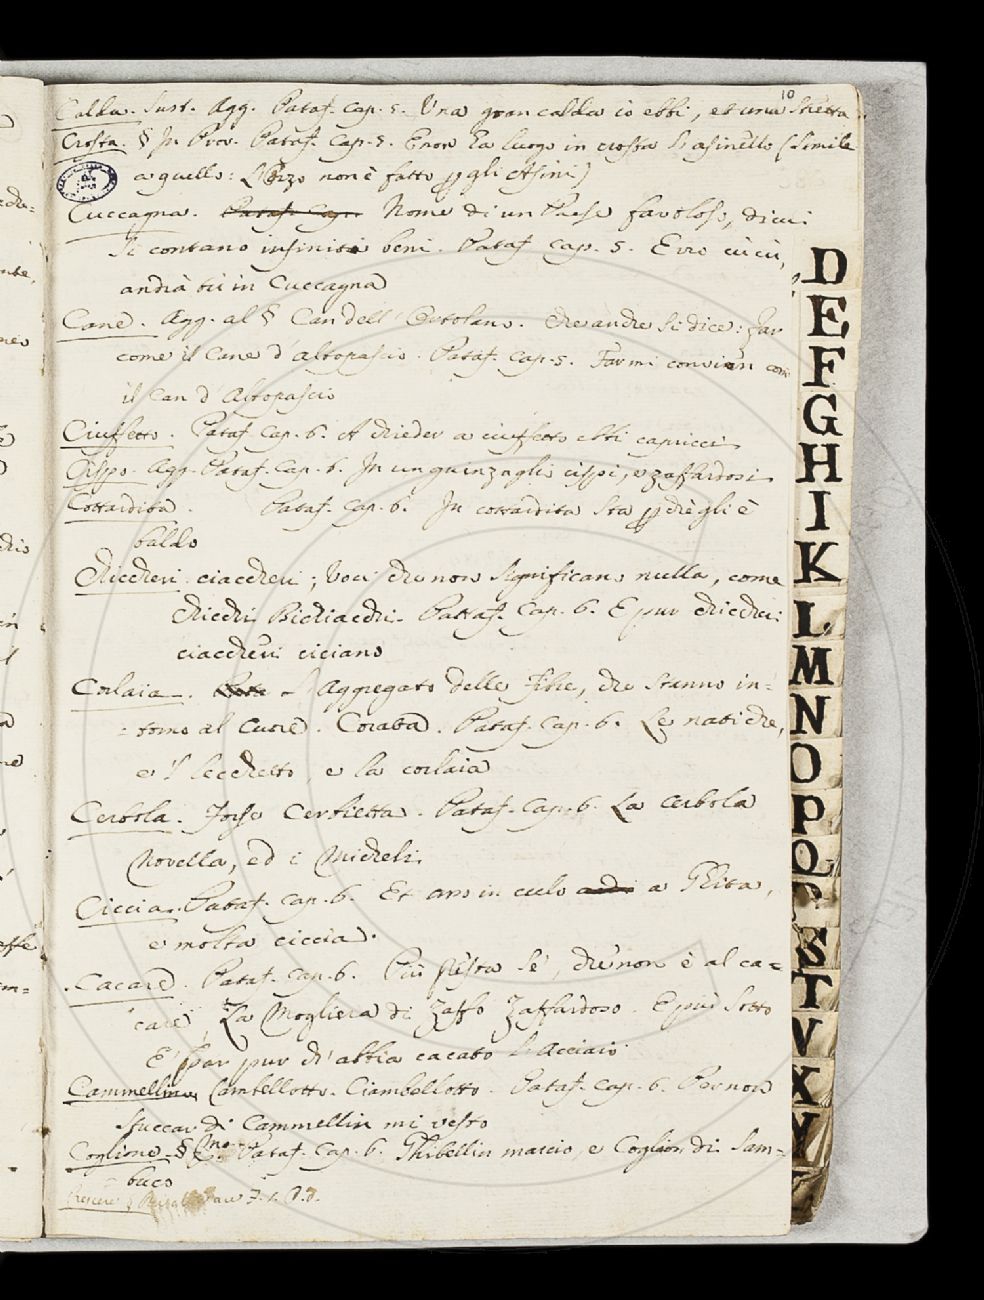 10
Calda. Sust. Agg. Pataf. Cap. 5. Una gran calda io ebbi, et una stretta.
Crosta. § In Prov. Pataf. Cap. 5. E non ha luogo in crosta l'asinello (Simile
a quello: L'Orzo non è fatto p gli Asini)
Cuccagna. Nome di un Paese favoloso, di cui
si contano infiniti beni. Pataf. Cap. 5. Erro cù cù,
andrà tù in Cuccagna
Cane. Agg. al § Can dell' Ortolano. che anche si dice: far
come il Cane d'altopascio. Pataf. Cap. 5. Far mi convien com
il Can d'Altopascio
Ciuffetto. Pataf. Cap. 6. A chieder a ciuffetto ebbi capricci
Cispo. Agg. Pataf. Cap. 6. In un guinzaglio cispi, e zaffardosi
Cottardita. Pataf. Cap. 6. In cottardita sta p ch'egli è
baldo
Chiccheri ciaccheri; Voci che non significano nulla, come
Chicchi Bichiacchi. Pataf. Cap. 6. E pur chiccheri
ciaccheri ciciano
Corlaia. L'Aggregato delle Fibre, che stanno in-
torno al Cuore. Corata. Pataf. Cap. 6. Le natiche,
e 'l secchetto, e la corlaia
Cerbola. Forse Cerbietta. Pataf. Cap. 6. La Cerbola
Novella, ed i Micheli
Ciccia. Pataf. Cap. 6. Et arso in culo a Ghita,
e molta ciccia.
Cacare. Pataf. Cap. 6. Più pesta sè, che non è al ca-
care, La Mogliera di Zaffo Zaffardoso. E più sotto
E' par pur ch'abbia cacato l'Acciaio
Cammellino Cambellotto. Ciambellotto. Pataf. Cap. 6. Per non
stuccar di Cammellin mi vesto
Coglione. § Pataf. Cap. 6. Ghibellin marcio, e Coglion di Sam-
buco
D
E
F
G
H
I
K
L
M
N
O
P
Q
S
T
V
X
Y